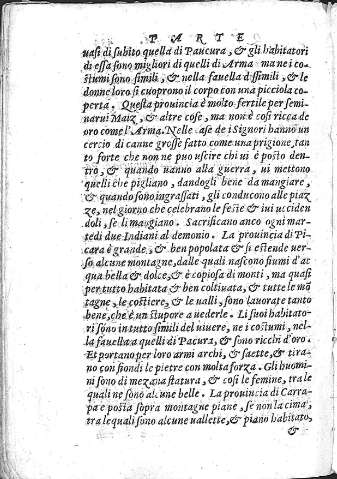 PARTE
uasi di subito quella di Paucura, & gli habitatori
di essa sono migliori di quelli di Arma ma ne i co-
stumi sono simili, & nella fauella dissimili, & le
donne loro si cuoprono il corpo con una picciola co-
perta. Questa prouincia è molto fertile per semi-
narui Maiz, & altre cose, ma non è così ricca de
oro come l'Arma. Nelle case de i Signori hanno un
cerchio di canne grosse fatto come una prigione, tan
to forte che non ne può uscire chi ui è posto den-
tro, & quando uanno alla guerra, ui mettono
quelli che pigliano, dandogli bene da mangiare,
& quando sono ingrassati, gli conducono alle piaz
ze, nel giorno che celebrano le feste & iui ucciden
doli, se li mangiano. Sacrificano anco ogni mar-
tedi due Indiani al demonio. La prouincia di Pi-
cara è grande, & ben popolata & si estende uer-
so alcune montagne, dalle quali nascono fiumi d'ac
qua bella & dolce, & è copiosa di monti, ma quasi
per tutto habitata & ben coltiuata, & tutte le mõ
tagne, le costiere, & le ualli, sono lauorate tanto
bene, che è un stupore a uederle. Li suoi habitato-
ri sono in tutto simili del uiuere, ne i costumi, nel-
la fauella a quelli di Pacura, & sono ricchi d'oro.
Et portano per loro armi archi, & saette, & tira-
no con fiondi le pietre con molta forza. Gli huomi-
ni sono di mezana statura, & così le femine, tra le
quali ne sono alcune belle. La prouincia di Carra-
pa è posta sopra montagne piane, se non la cima,
tra le quali sono alcune uallette, & piano habitato,
&